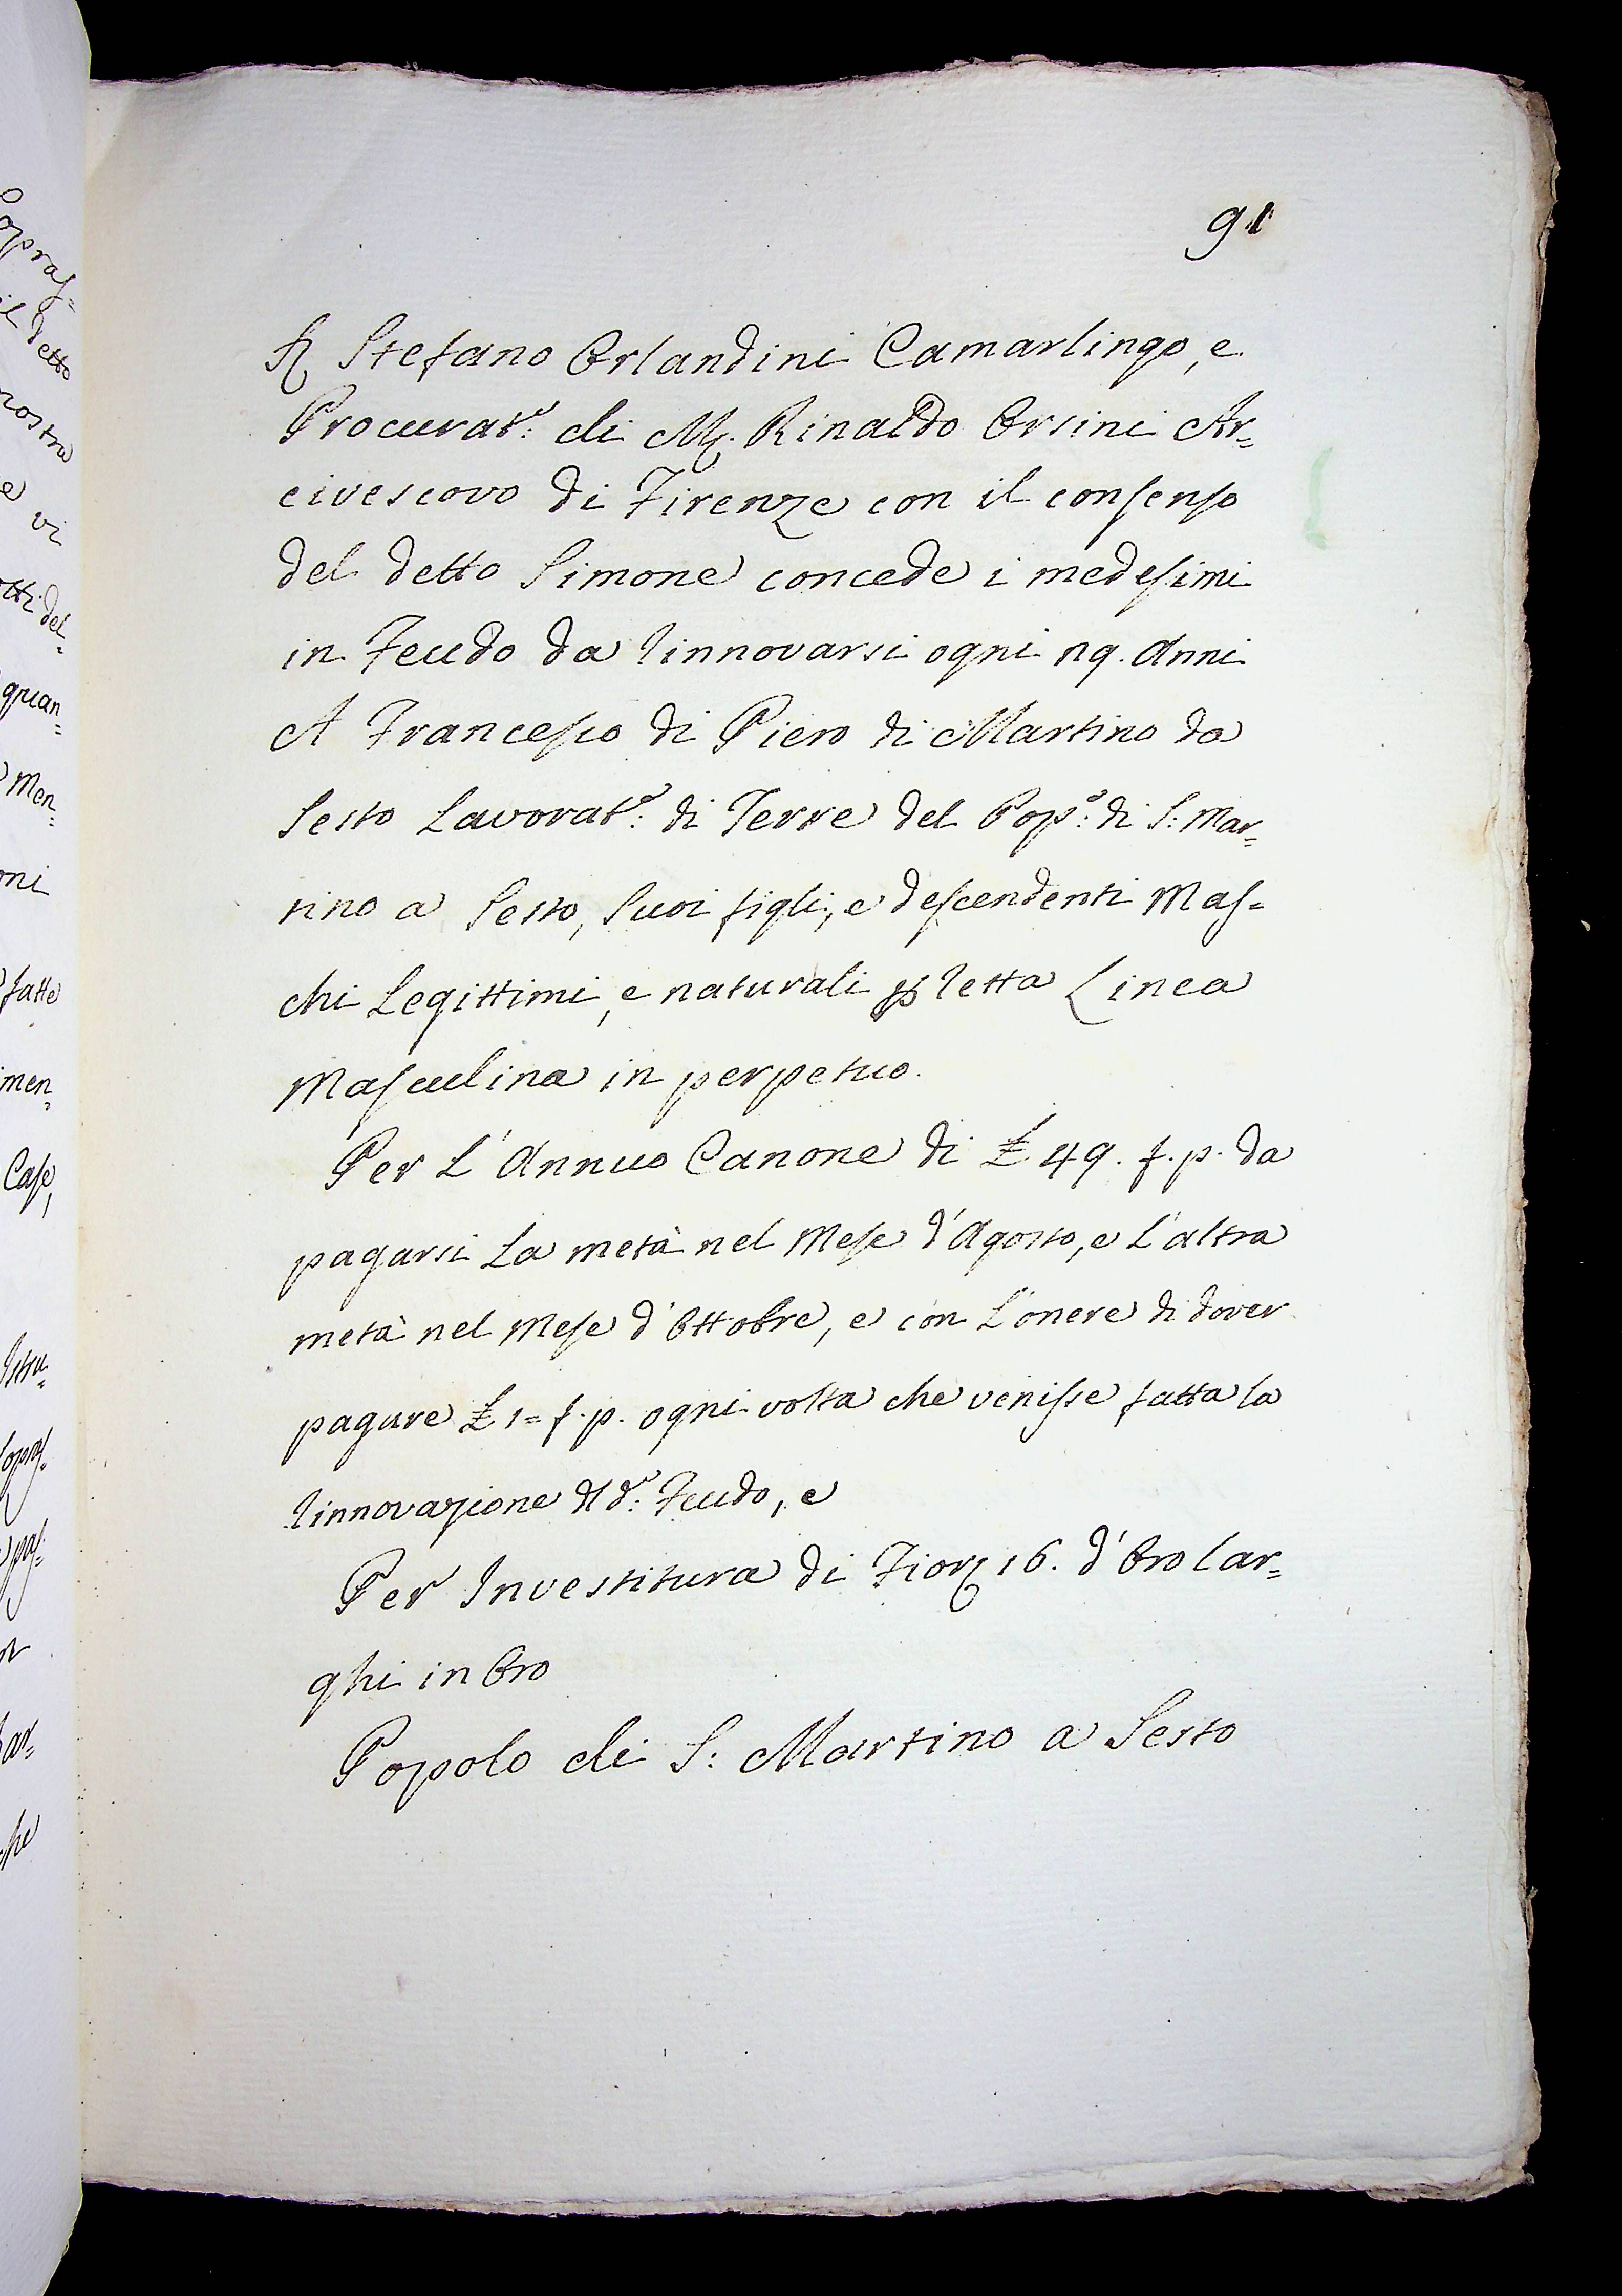 91
Sr. Stefano Orlandini Camarlingo, e
Procurat.e di Mr. Rinaldo Orsini Ar=
civescovo di Firenze con il consenso
del detto Simone concede i medesimi
in Feudo da Rinnovarsi ogni 29. Anni
A Francesco di Piero di Martino da
Sesto Lavorat.e di Terre del Pop.o di S: Mar=
tino a Sesto, Suoi figli, e descendenti Mas=
chi Legittimi, e naturali p Retta Linea
Masculina in perpetuo.
Per L'Annuo Canone di £ 49. f. p. da
pagarsi La metà nel Mese d'Agosto, e L'altra
metà nel Mese d'Ottobre, e con L'onere di dover
pagare £ 1= f. p. ogni volta che venisse fatta la
Rinnovazione del d.o Feudo, e
Per Investitura di Fior. 16. d'Oro Lar=
ghi in Oro
Popolo di S: Martino a Sesto
il detto
nostra
e vi
otti del=
quan=
Men=
oni
fatte
men=
Case,
Istru=